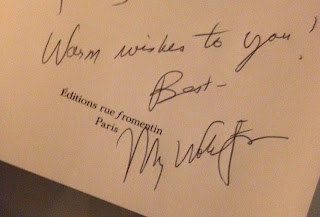 Warm wishes to you!
Best-
Éditions rue fromentin
Paris